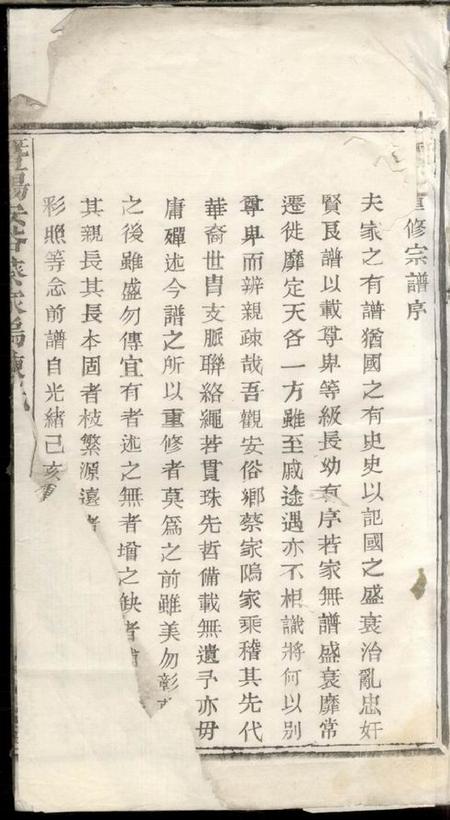 重修宗譜序
夫家之有譜猶國之有史史以記國之盛衰治亂忠奸
賢良譜以載尊卑等級長幼有序若家無譜盛衰靡常
遷徙靡定天各一方雖至戚途遇亦不相識將何以別
尊卑而辨親疎哉吾觀安俗鄉蔡家隖家乘稽其先代
華裔世胄支脈聯絡繩若貫珠先哲備載無遺予亦毋
庸殫述今譜之所以重修者莫為之前雖美勿彰
之後雖盛勿傳宜有者述之無者增之缺者
其親長其長本固者枝繁源遠者
彩照等念前譜自光緒己亥
暨陽安俗蔡家隖陳氏